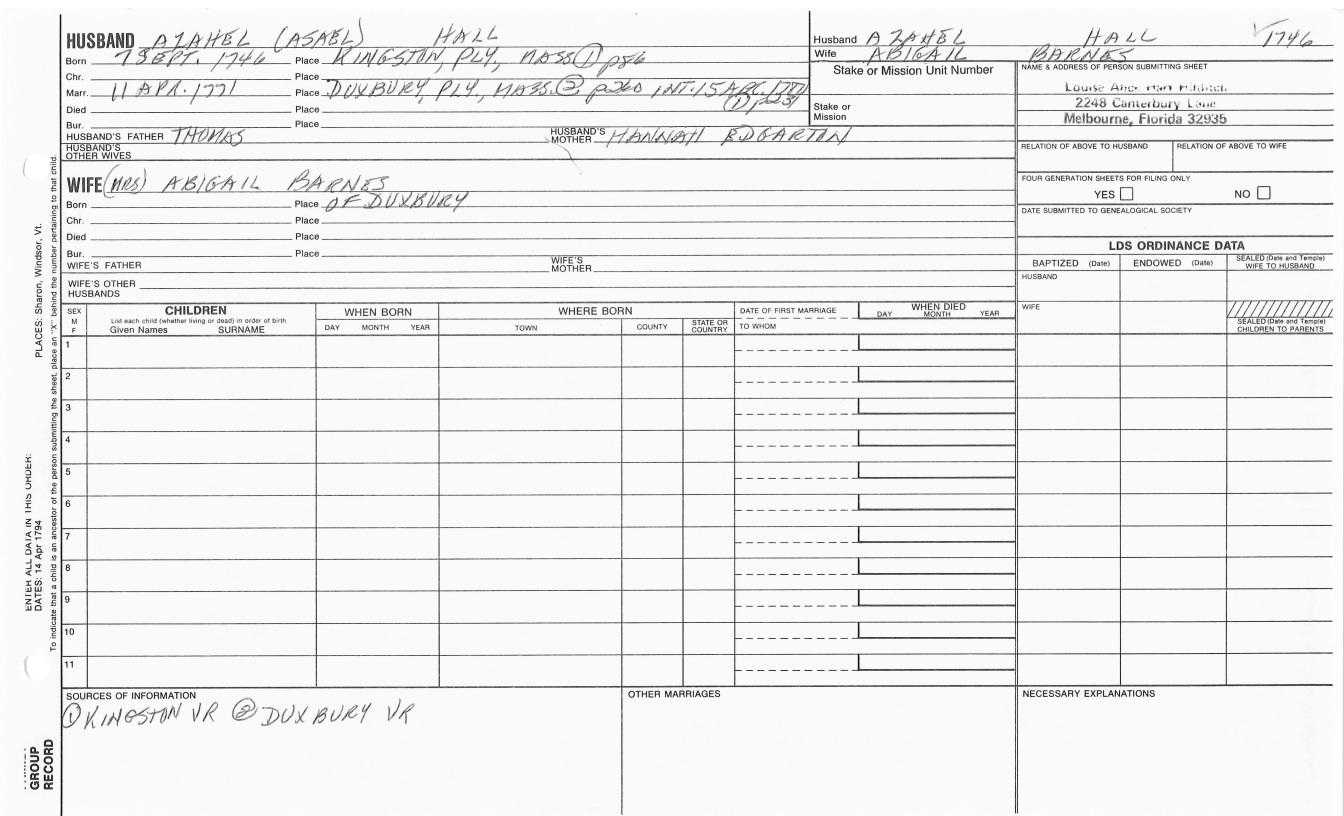 HUSBAND AZAHEL (ASAEL) HALL
Born 7 SEPT. 1746 Place KINGSTON, PLY, MASS ① p86
Chr. Place
Marr. 11 APR. 1771 Place DUXBURY, PLY, MASS. ② p260 INT. 15
① p231
Died Place
Bur. Place
HUSBAND'S FATHER THOMAS HUSBAND'S MOTHER HANNAH EDGARTON
HUSBAND'S OTHER WIVES
Husband AZAHEL HALL 1746
Wife ABIGAIL BARNES
Stake or Mission Unit Number
Stake or Mission
NAME & ADDRESS OF PERSON SUBMITTING SHEET
Louise
2248 Canterbury Lane
Melbourne, Florida 32935
RELATION OF ABOVE TO HUSBAND RELATION OF ABOVE TO WIFE
FOUR GENERATION SHEETS FOR FILING ONLY
YES NO
DATE SUBMITTED TO GENEALOGICAL SOCIETY
WIFE (MRS) ABIGAIL BARNES
Born Place OF DUXBURY
Chr. Place
Died Place
Bur. Place
WIFE'S FATHER WIFE'S MOTHER
WIFE'S OTHER HUSBANDS
LDS ORDINANCE DATA
BAPTIZED (Date) ENDOWED (Date) SEALED (Date and Temple) WIFE TO HUSBAND
HUSBAND
WIFE
SEALED (Date and Temple) CHILDREN TO PARENTS
SEX M F
CHILDREN
List each child (whether living or dead) in order of birth
Given Names SURNAME
WHEN BORN
DAY MONTH YEAR
WHERE BORN
TOWN COUNTY STATE OR COUNTRY
DATE OF FIRST MARRIAGE
TO WHOM
WHEN DIED
DAY MONTH YEAR
1
2
3
4
5
6
7
8
9
10
11
SOURCES OF INFORMATION
① KINGSTON VR ② DUXBURY VR
OTHER MARRIAGES
NECESSARY EXPLANATIONS
PLACES: Sharon, Windsor, Vt.
ENTER ALL DATA IN THIS ORDER:
DATES: 14 Apr 1794
To indicate that a child is an ancestor of the person submitting the sheet, place an "X" behind the number pertaining to that child.
GROUP
RECORD